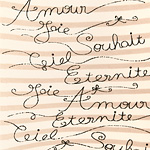 Amour
Joie
Souhait
Ciel
Eternite
Joie Amour
Eternite
Ciel
Souhait